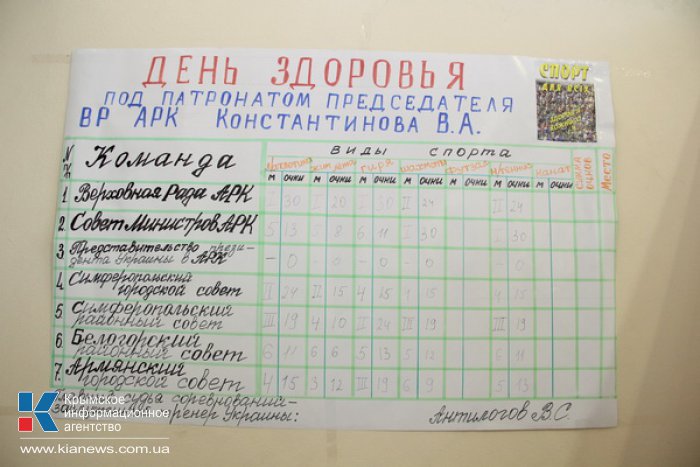 ДЕНЬ ЗДОРОВЬЯ
ПОД ПАТРОНАТОМ ПРЕДСЕДАТЕЛЯ
ВР АРК КОНСТАНТИНОВА В.А.
СПОРТ
ДЛЯ ВСЕХ
Команда
виды спорта
гиря шахматы футзал н/теннис канат сумма очков Место
м очки м очки м очки м очки м очки м очки м очки
1. Верховная Рада АРК I 30 I 20 I 30 II 24 II 24
2. Совет Министров АРК 5 13 5 8 6 11 I 30 I 30
3 Представительство прези-
дента Украины в АРК - 0 - 0 - 0 - 0 - 0
4. Симферопольский
городской совет II 24 II 15 4 15 4 15
5. Симферопольский
районный совет III 19 4 10 II 24 III 19 III 19
6. Белогорский
районный совет 6 11 6 6 5 13 5 12 6 11
7. Армянский
городской совет 4 15 3 12 III 19 6 9 5 13
судья соревнований-
тренер Украины: Антилогов В.С.
Крымское
информационное
агентство
www.kianews.com.ua